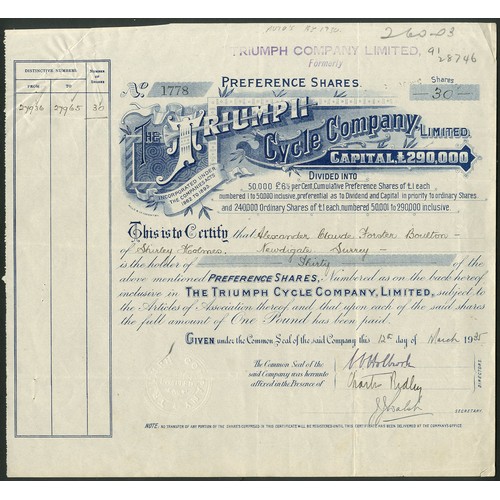 260-03
TRIUMPH COMPANY LIMITED,
Formerly
91
28746
DISTINCTIVE NUMBERS
NUMBER OF SHARES
FROM
TO
27936 27965 30
No. 1778
PREFERENCE SHARES.
Shares
30
THE TRIUMPH
Cycle Company,
LIMITED.
INCORPORATED UNDER
THE COMPANIES ACTS
1862 TO 1893.
CAPITAL £290,000
DIVIDED INTO
50,000 £6½ per Cent, Cumulative Preference Shares of £1 each
numbered 1 to 50,000 inclusive, preferential as to Dividend and Capital in priority to ordinary Shares
and 240,000 Ordinary Shares of £1 each, numbered 50,001 to 290,000 inclusive.
This is to Certify that Alexander Claude Forster Boulton -
of Shirley Holmes, Newdigate Surrey -
is the holder of Thirty of the
above mentioned PREFERENCE SHARES, Numbered as on the back hereof
inclusive in THE TRIUMPH CYCLE COMPANY, LIMITED, subject to
the Articles of Association thereof and that upon each of the said shares
the full amount of One Pound has been paid.
GIVEN under the Common Seal of the said Company this 12th day of March 1935
The Common Seal of the
said Company was hereunto
affixed in the Presence of
Charles Ridley
DIRECTORS
SECRETARY
NOTE: NO TRANSFER OF ANY PORTION OF THE SHARES COMPRISED IN THIS CERTIFICATE WILL BE REGISTERED UNTIL THIS CERTIFICATE HAS BEEN DELIVERED AT THE COMPANY'S OFFICE.